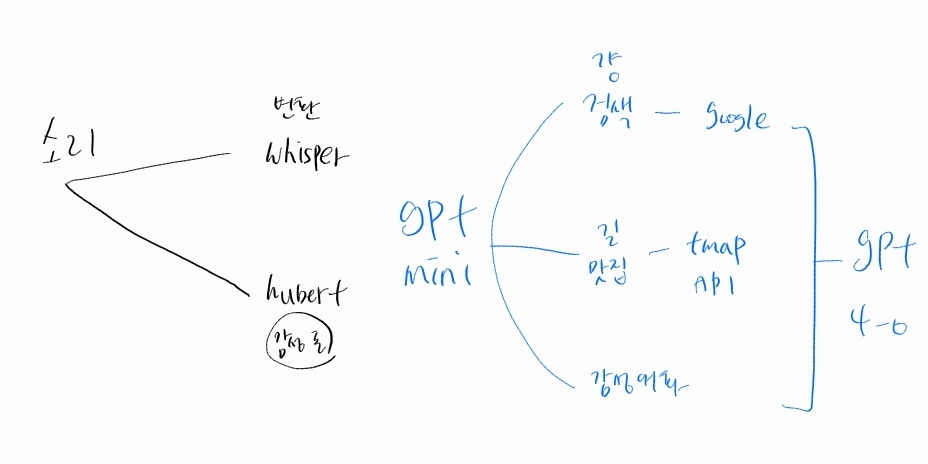 소리
변환
whisper
hubert
gpt
mini
강
검색 — google
길
맛집 — tmap
API
gpt
4-o